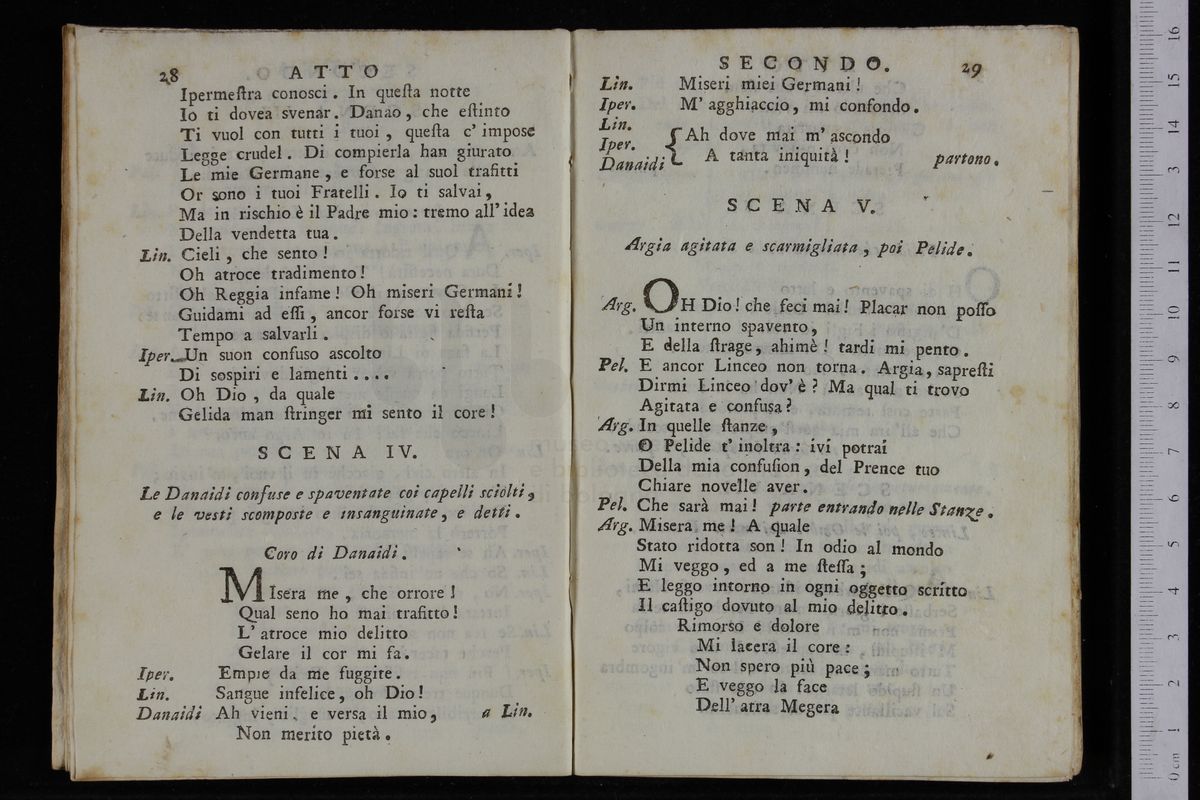 28 ATTO
Ipermeſtra conosci. In queſta notte
Io ti dovea svenar. Danao, che eſtinto
Ti vuol con tutti i tuoi, queſta c' impose
Legge crudel. Di compierla han giurato
Le mie Germane, e forse al suol trafitti
Or sono i tuoi Fratelli. Io ti salvai,
Ma in rischio è il Padre mio: tremo all' idea
Della vendetta tua.
Lin. Cieli, che sento!
Oh atroce tradimento!
Oh Reggia infame! Oh miseri Germani!
Guidami ad eſſi, ancor forse vi reſta
Tempo a salvarli.
Iper. Un suon confuso ascolto
Di sospiri e lamenti....
Lin. Oh Dio, da quale
Gelida man ſtringer mi sento il core!
SCENA IV.
Le Danaidi confuse e spaventate coi capelli sciolti,
e le vesti scomposte e insanguinate, e detti.
Coro di Danaidi.
MIsera me, che orrore!
Qual seno ho mai trafitto!
L' atroce mio delitto
Gelare il cor mi fa.
Iper. Empie da me fuggite.
Lin. Sangue infelice, oh Dio!
Danaidi Ah vieni, e versa il mio, a Lin.
Non merito pietà.
SECONDO. 29
Lin. Miseri miei Germani!
Iper. M' agghiaccio, mi confondo.
Lin.
Iper. { Ah dove mai m' ascondo
Danaidi A tanta iniquità! partono.
SCENA V.
Argia agitata e scarmigliata, poi Pelide.
Arg. OH Dio! che feci mai! Placar non poſſo
Un interno spavento,
E della ſtrage, ahimè! tardi mi pento.
Pel. E ancor Linceo non torna. Argia, sapreſti
Dirmi Linceo dov' è? Ma qual ti trovo
Agitata e confusa?
Arg. In quelle ſtanze,
O Pelide t' inoltra: ivi potrai
Della mia confuſion, del Prence tuo
Chiare novelle aver.
Pel. Che sarà mai! parte entrando nelle Stanze.
Arg. Misera me! A quale
Stato ridotta son! In odio al mondo
Mi veggo, ed a me ſteſſa;
E leggo intorno in ogni oggetto scritto
Il caſtigo dovuto al mio delitto.
Rimorso e dolore
Mi lacera il core:
Non spero più pace;
E veggo la face
Dell' atra Megera